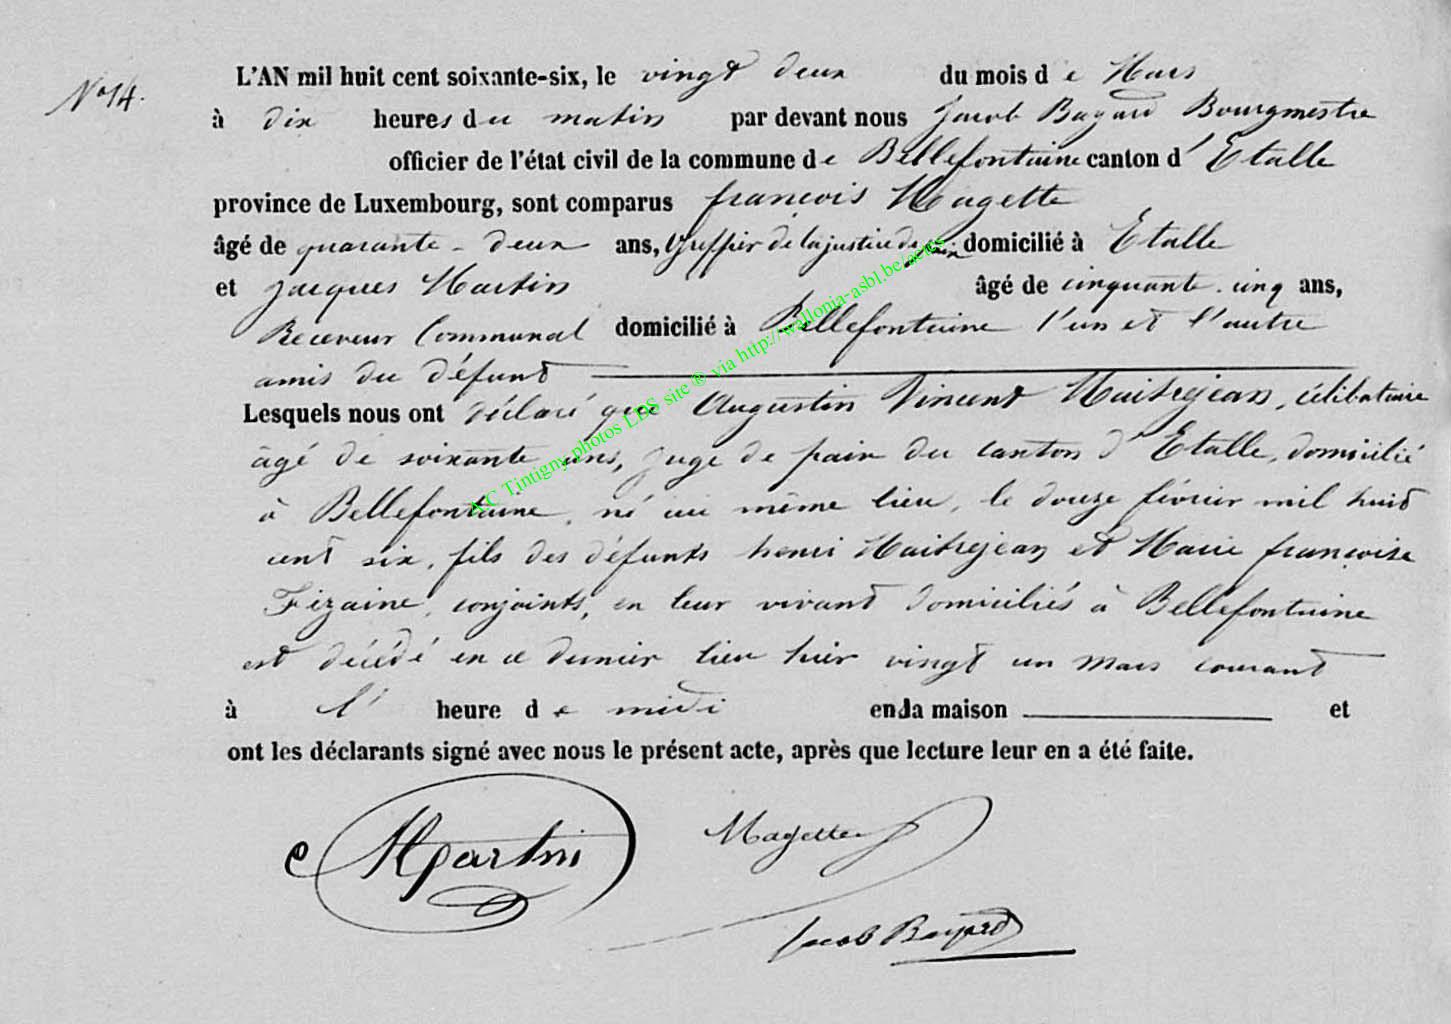 N° 14.
L'AN mil huit cent soixante-six, le vingt deux du mois de Mars
à dix heures du matin par devant nous Jacob Bayard Bourgmestre
officier de l'état civil de la commune de Bellefontaine canton d'Etalle
province de Luxembourg, sont comparus françois Magette
âgé de quarante-deux ans, Greffier de la justice de paix domicilié à Etalle
et Jacques Martin âgé de cinquante-cinq ans,
Receveur Communal domicilié à Bellefontaine l'un et l'autre
amis du défunt
Lesquels nous ont déclaré que Augustin Vincent Maitrejean, célibataire
âgé de soixante ans, juge de paix du canton d'Etalle, domicilié
à Bellefontaine, né au même lieu, le douze février mil huit
cent six, fils des défunts henri Maitrejean et Marie françoise
Fizaine, conjoints, en leur vivant domiciliés à Bellefontaine
est décédé en ce dernier lieu hier vingt un mars courant
à l' heure de midi en la maison et
ont les déclarants signé avec nous le présent acte, après que lecture leur en a été faite.
Martin
Magette
Jacob Bayard
AC Tintigny photos LDS site ® via http://wallonia-asbl.be/actes